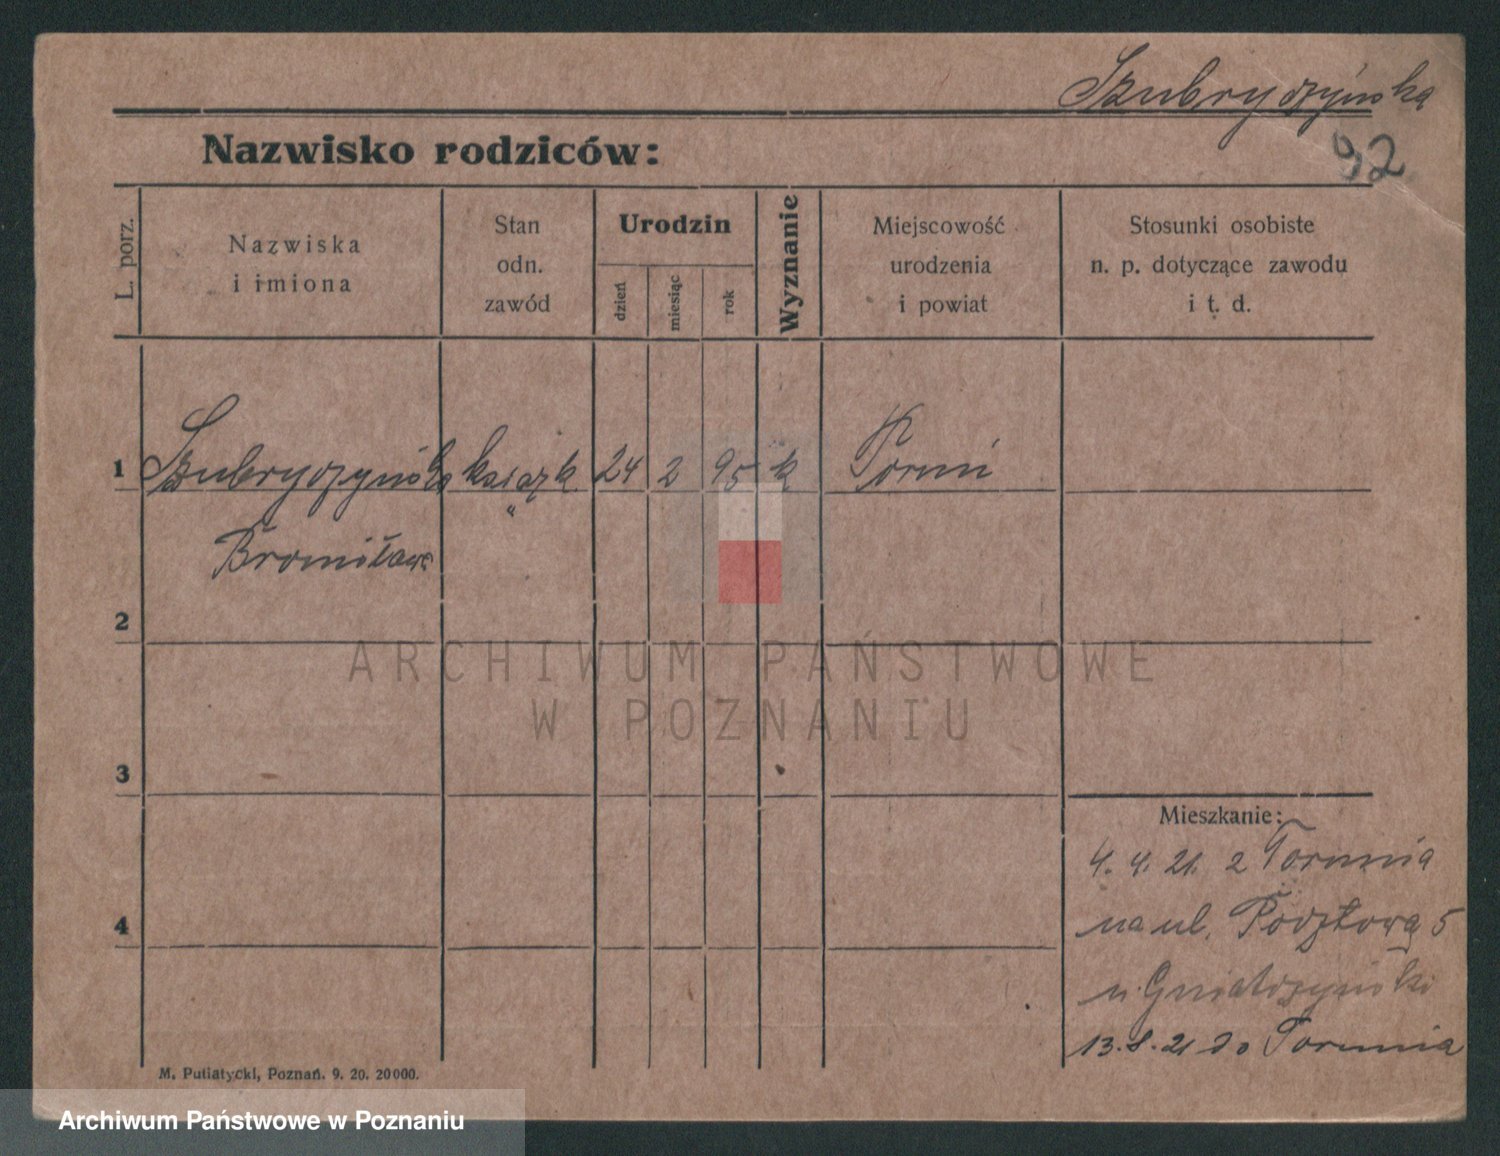 Szubryczyńska
92
Nazwisko rodziców:
L. porz.
Nazwiska
i imiona
Stan
odn.
zawód
Urodzin
dzień
miesiąc
rok
Wyznanie
Miejscowość
urodzenia
i powiat
Stosunki osobiste
n. p. dotyczące zawodu
i t. d.
1 Szubryczyńska 24 2 95 k Toruń
Bronisława
2
ARCHIWUM PAŃSTWOWE
W POZNANIU
3
Mieszkanie:
4. 4. 21. z Torunia
4
na ul. Pocztową 5
u Gniatczyński
13. 8. 21 do Torunia
M. Putiatycki, Poznań. 9. 20. 20000.
Archiwum Państwowe w Poznaniu